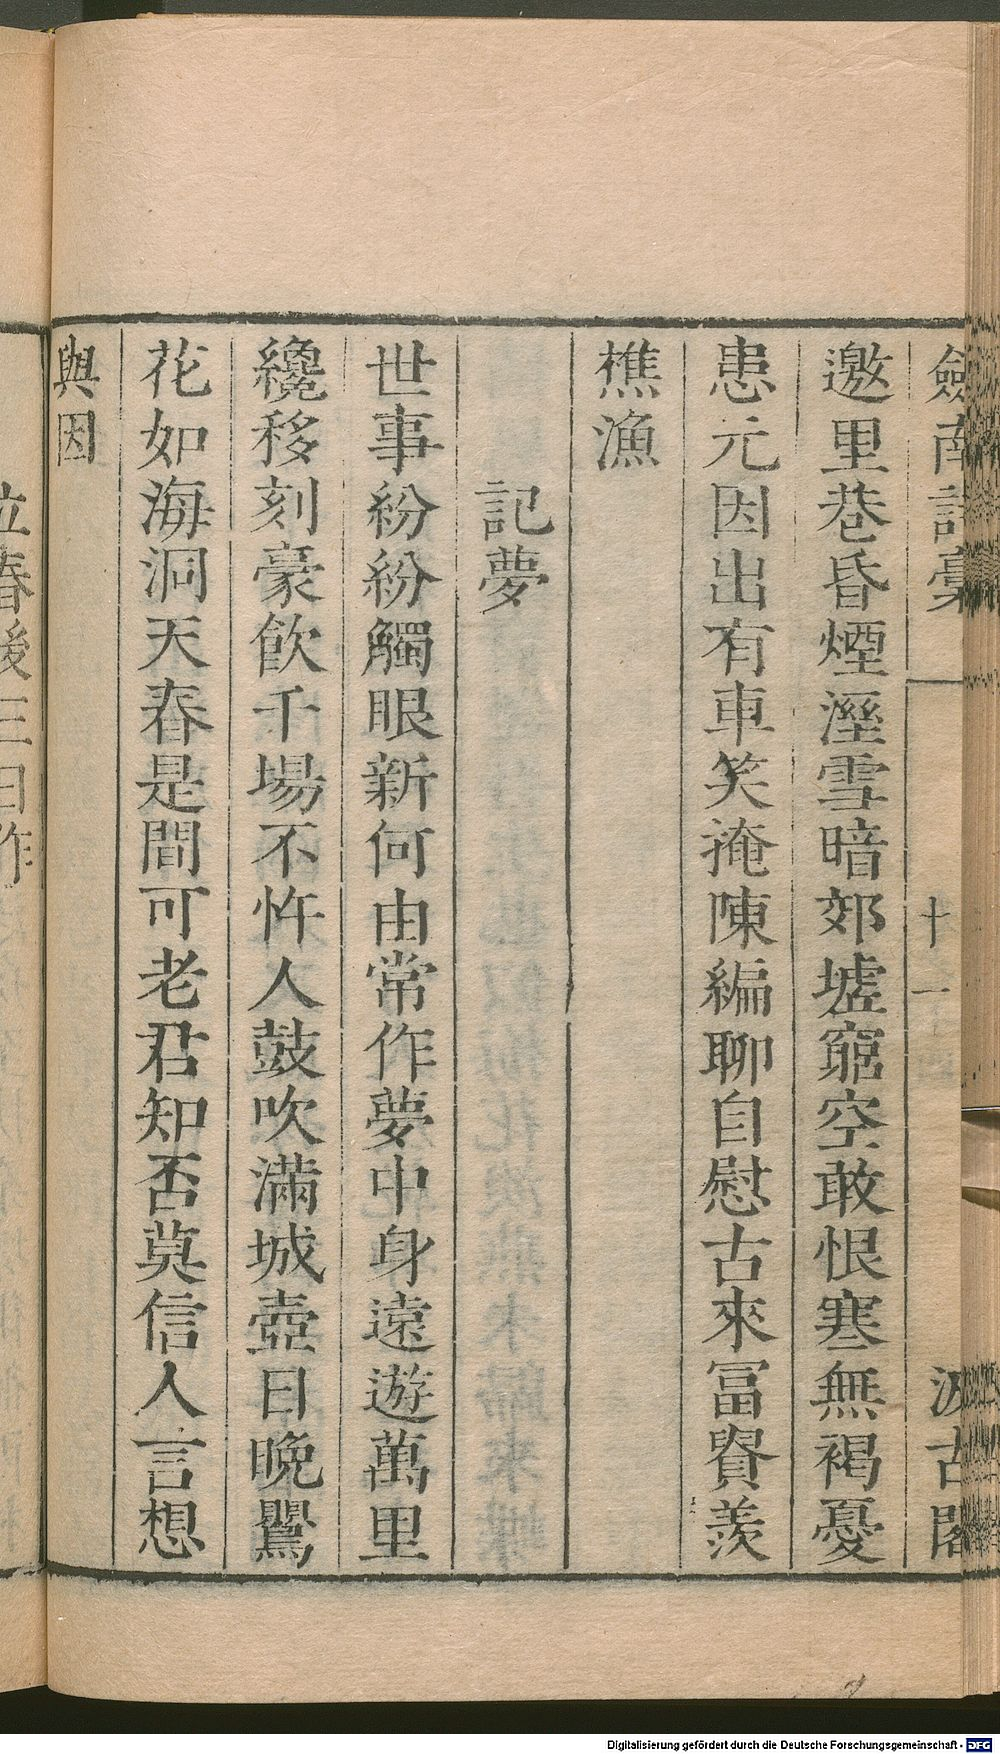 劒南詩稾 十一 汲古閣
邀里巷昏煙溼雪暗郊墟窮空敢恨寒無褐憂
患元因出有車笑掩陳編聊自慰古來冨貴羨
樵漁
記夢
世事紛紛觸眼新何由常作夢中身遠遊萬里
纔移刻豪飲千場不忤人鼓吹滿城壺日晚鸎
花如海洞天春是間可老君知否莫信人言想
與因
立春後三日作
Digitalisierung gefördert durch die Deutsche Forschungsgemeinschaft - DFG